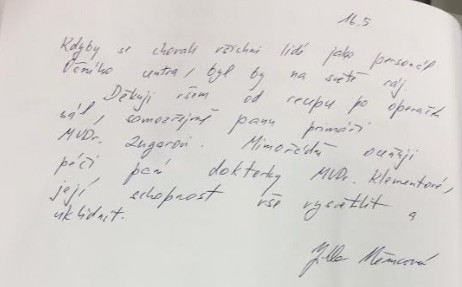 16.5
Kdyby se chovali všichni lidé jako personál
Očního centra, byl by na světě ráj.
Děkuji všem od recepce po operační
sál, samozřejmě panu primáři
MUDr. Zugarovi. Mimořádně oceňuji
péči paní doktorky MUDr. Klementové,
její schopnost vše vysvětlit a
uklidnit.
Němcová